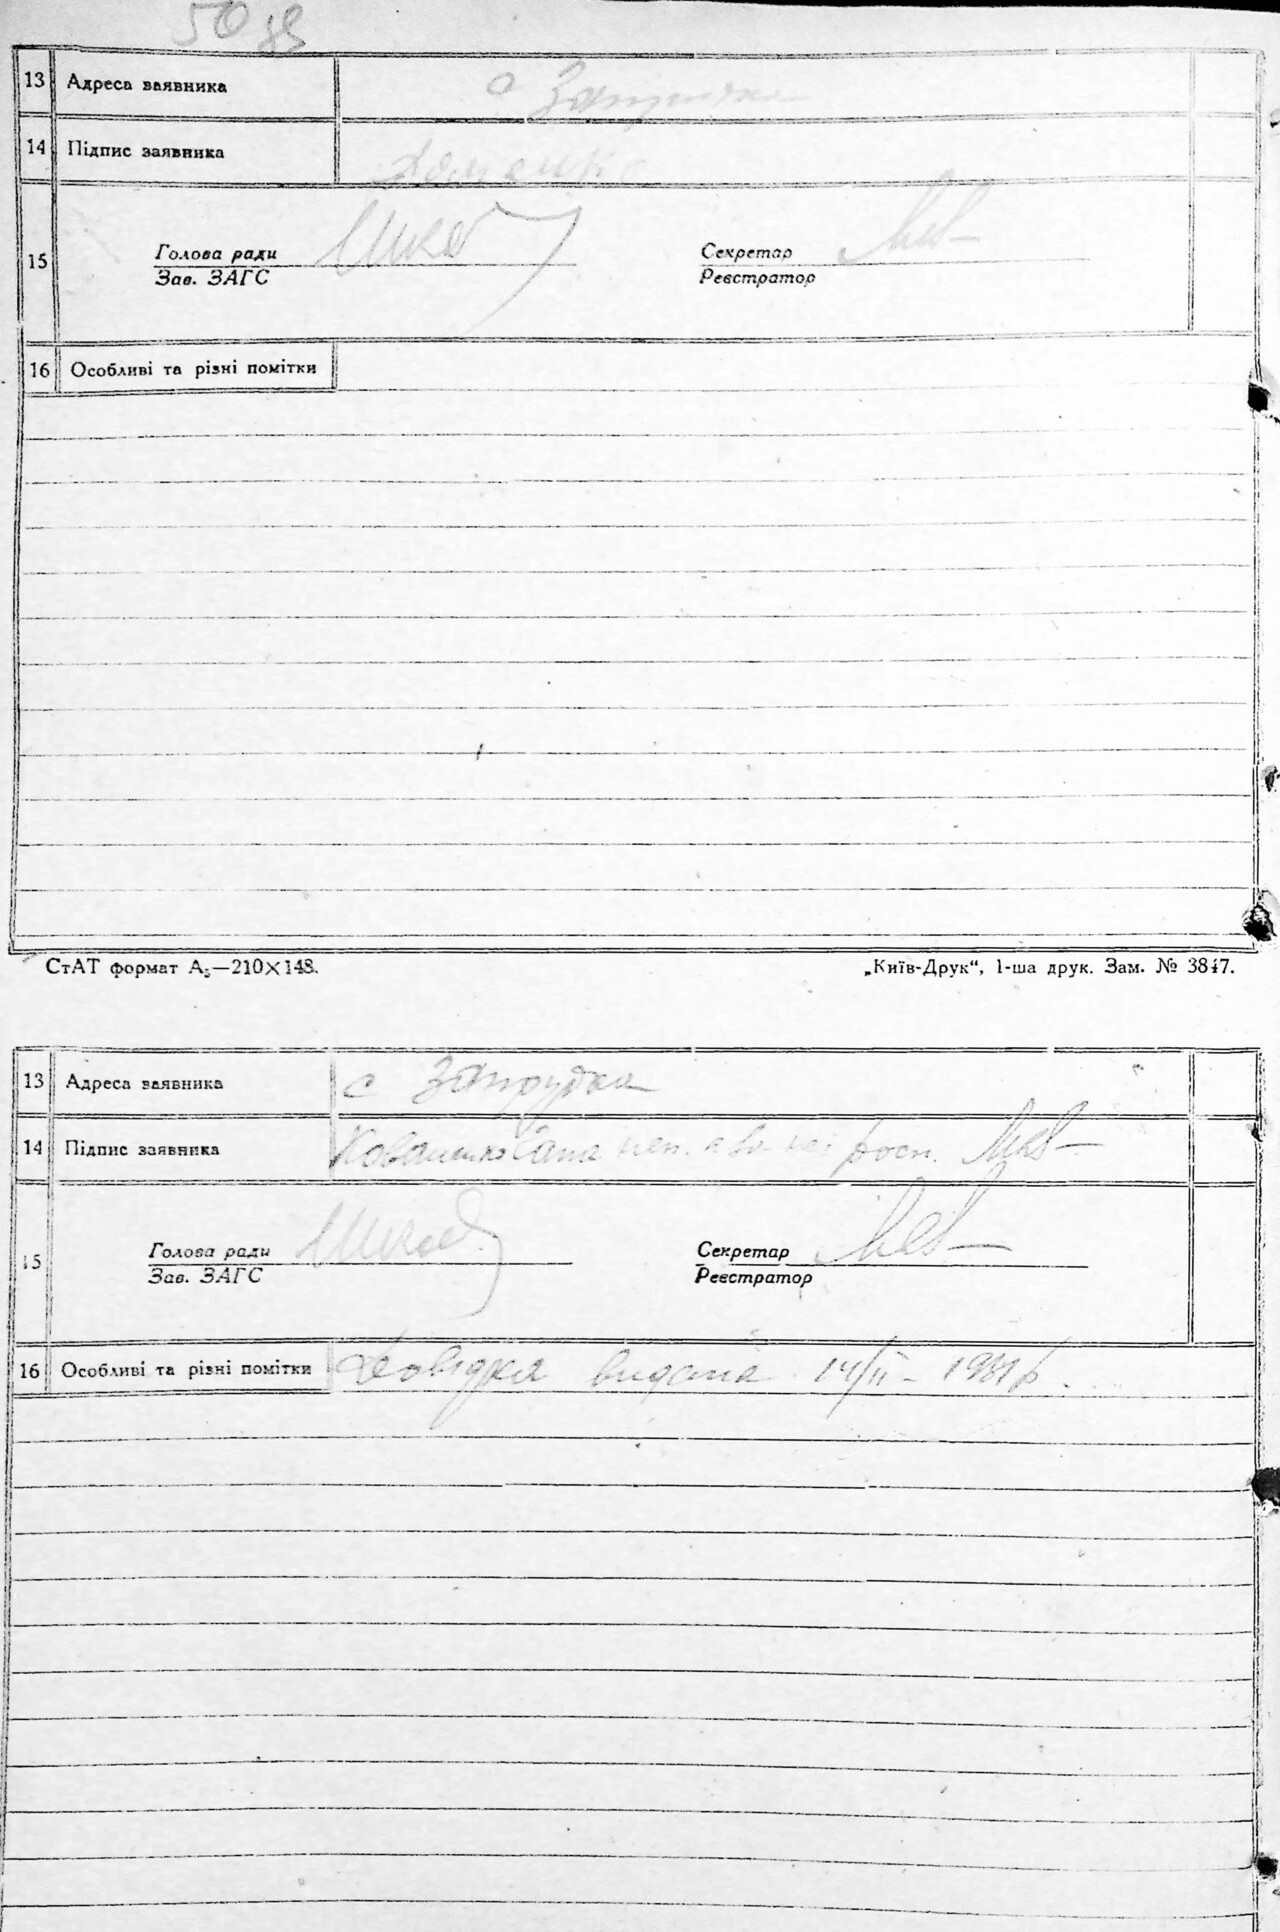 50 зв
13 Адреса заявника с Запрудка
14 Підпис заявника
15 Голова ради Секретар
Зав. ЗАГС Реєстратор
16 Особливі та різні помітки
СтАТ формат А₅—210×148. „Київ-Друк“, 1-ша друк. Зам. № 3847.
13 Адреса заявника с Запрудка
14 Підпис заявника Коваленко неп. а во неї росп.
15 Голова ради Секретар
Зав. ЗАГС Реєстратор
16 Особливі та різні помітки Довідка видана 14/II - 1931 р.